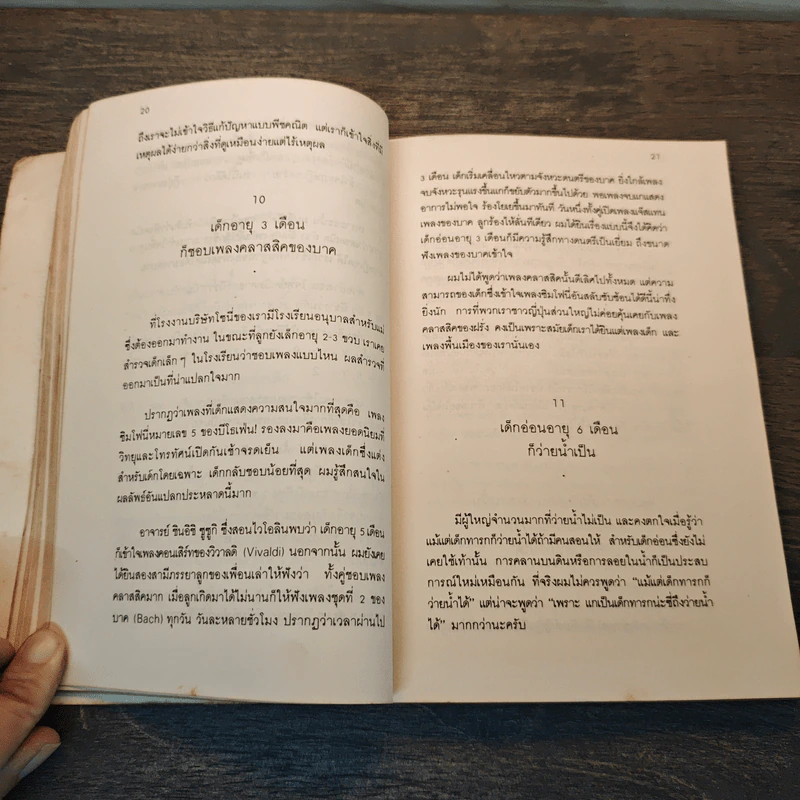 20
ถึงเราจะไม่เข้าใจวิธีแก้ปัญหาแบบพีชคณิต แต่เราก็เข้าใจสิ่งที่มี
เหตุผลได้ง่ายกว่าสิ่งที่ดูเหมือนง่ายแต่ไร้เหตุผล
10
เด็กอายุ 3 เดือน
ก็ชอบเพลงคลาสสิคของบาค
ที่โรงงานบริษัทโซนี่ของเรามีโรงเรียนอนุบาลสำหรับแม่
ซึ่งต้องออกมาทำงาน ในขณะที่ลูกยังเล็กอายุ 2-3 ขวบ เราเคย
สำรวจเด็กเล็กๆ ในโรงเรียนว่าชอบเพลงแบบไหน ผลสำรวจที่
ออกมาเป็นที่น่าแปลกใจมาก
ปรากฏว่าเพลงที่เด็กแสดงความสนใจมากที่สุดคือ เพลง
ซิมโฟนี่หมายเลข 5 ของบีโธเฟ่น! รองลงมาคือเพลงยอดนิยมที่
วิทยุและโทรทัศน์เปิดกันเช้าจรดเย็น แต่เพลงเด็กซึ่งแต่ง
สำหรับเด็กโดยเฉพาะ เด็กกลับชอบน้อยที่สุด ผมรู้สึกสนใจใน
ผลลัพธ์อันแปลกประหลาดนี้มาก
อาจารย์ ชินอิชิ ซูซูกิ ซึ่งสอนไวโอลินพบว่า เด็กอายุ 5 เดือน
ก็เข้าใจเพลงคอนเสิร์ทของวิวาลดิ (Vivaldi) นอกจากนั้น ผมยังเคย
ได้ยินสองสามีภรรยาลูกของเพื่อนเล่าให้ฟังว่า ทั้งคู่ชอบเพลง
คลาสสิคมาก เมื่อลูกเกิดมาได้ไม่นานก็ให้ฟังเพลงชุดที่ 2 ของ
บาค (Bach) ทุกวัน วันละหลายชั่วโมง ปรากฏว่าเวลาผ่านไป
21
3 เดือน เด็กเริ่มเคลื่อนไหวตามจังหวะดนตรีของบาค ยิ่งใกล้เพลง
จบจังหวะรุนแรงขึ้นแกก็ขยับตัวมากขึ้นไปด้วย พอเพลงจบแกแสดง
อาการไม่พอใจ ร้องโยเยขึ้นมาทันที วันหนึ่งทั้งคู่เปิดเพลงแจ๊สแทน
เพลงของบาค ลูกร้องไห้ลั่นทีเดียว ผมได้ยินเรื่องแบบนี้จึงได้คิดว่า
เด็กอ่อนอายุ 3 เดือนก็มีความรู้สึกทางดนตรีเป็นเยี่ยม ถึงขนาด
ฟังเพลงของบาคเข้าใจ
ผมไม่ได้พูดว่าเพลงคลาสสิคนั้นดีเลิศไปทั้งหมด แต่ความ
สามารถของเด็กซึ่งเข้าใจเพลงซิมโฟนี่อันสลับซับซ้อนได้ดีนี้น่าทึ่ง
ยิ่งนัก การที่พวกเราชาวญี่ปุ่นส่วนใหญ่ไม่ค่อยคุ้นเคยกับเพลง
คลาสสิคของฝรั่ง คงเป็นเพราะสมัยเด็กเราได้ยินแต่เพลงเด็ก และ
เพลงพื้นเมืองของเรานั่นเอง
11
เด็กอ่อนอายุ 6 เดือน
ก็ว่ายน้ำเป็น
มีผู้ใหญ่จำนวนมากที่ว่ายน้ำไม่เป็น และคงตกใจเมื่อรู้ว่า
แม้แต่เด็กทารกก็ว่ายน้ำได้ถ้ามีคนสอนให้ สำหรับเด็กอ่อนซึ่งยังไม่
เคยใช้เท้านั้น การคลานบนดินหรือการลอยในน้ำก็เป็นประสบ
การณ์ใหม่เหมือนกัน ที่จริงผมไม่ควรพูดว่า “แม้แต่เด็กทารกก็
ว่ายน้ำได้” แต่น่าจะพูดว่า “เพราะ แกเป็นเด็กทารกน่ะซี่ถึงว่ายน้ำ
ได้” มากกว่านะครับ